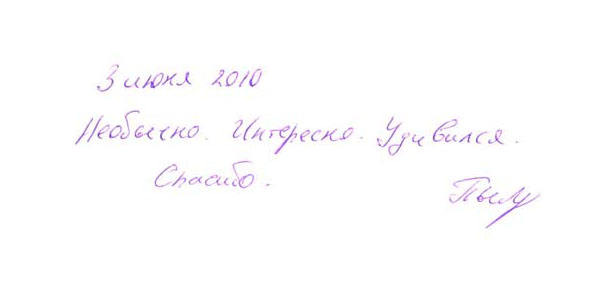 3 июня 2010
Необычно. Интересно. Удивился.
Спасибо.